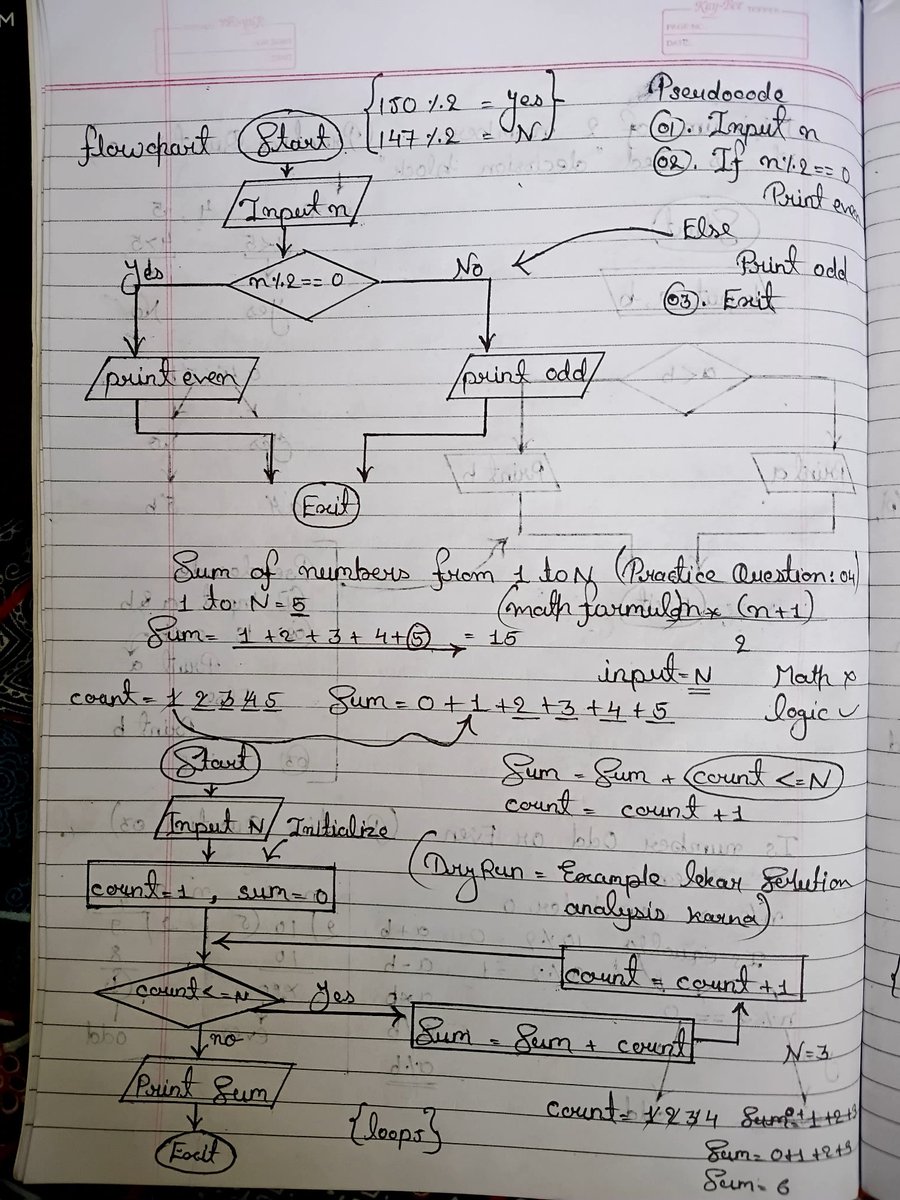 Key-Bee
PAGE NO.
DATE:
flowchart Start
{150 % 2 = Yes
147 % 2 = N}
Input n
n % 2 == 0
Yes
No
print even
print odd
Exit
Pseudocode
01). Input n
02). If n % 2 == 0
Print even
Else
Print odd
03). Exit
Sum of numbers from 1 to N (Practice Question: 04)
1 to N = 5
(math farmula) n × (n+1)
2
Sum = 1 + 2 + 3 + 4 + 5 = 15
input = N
Math ×
logic ✓
count = 1 2 3 4 5 Sum = 0 + 1 + 2 + 3 + 4 + 5
Start
Sum = Sum + count <= N
count = count + 1
Input N
Initialize
count = 1, sum = 0
(Dry Run = Example lekar Solution
analysis karna)
count <= N
Yes
no
Sum = Sum + count
count = count + 1
Print Sum
Exit
{loops}
N = 3
count = 1 2 3 4
Sum = 0+1+2+3
Sum = 6